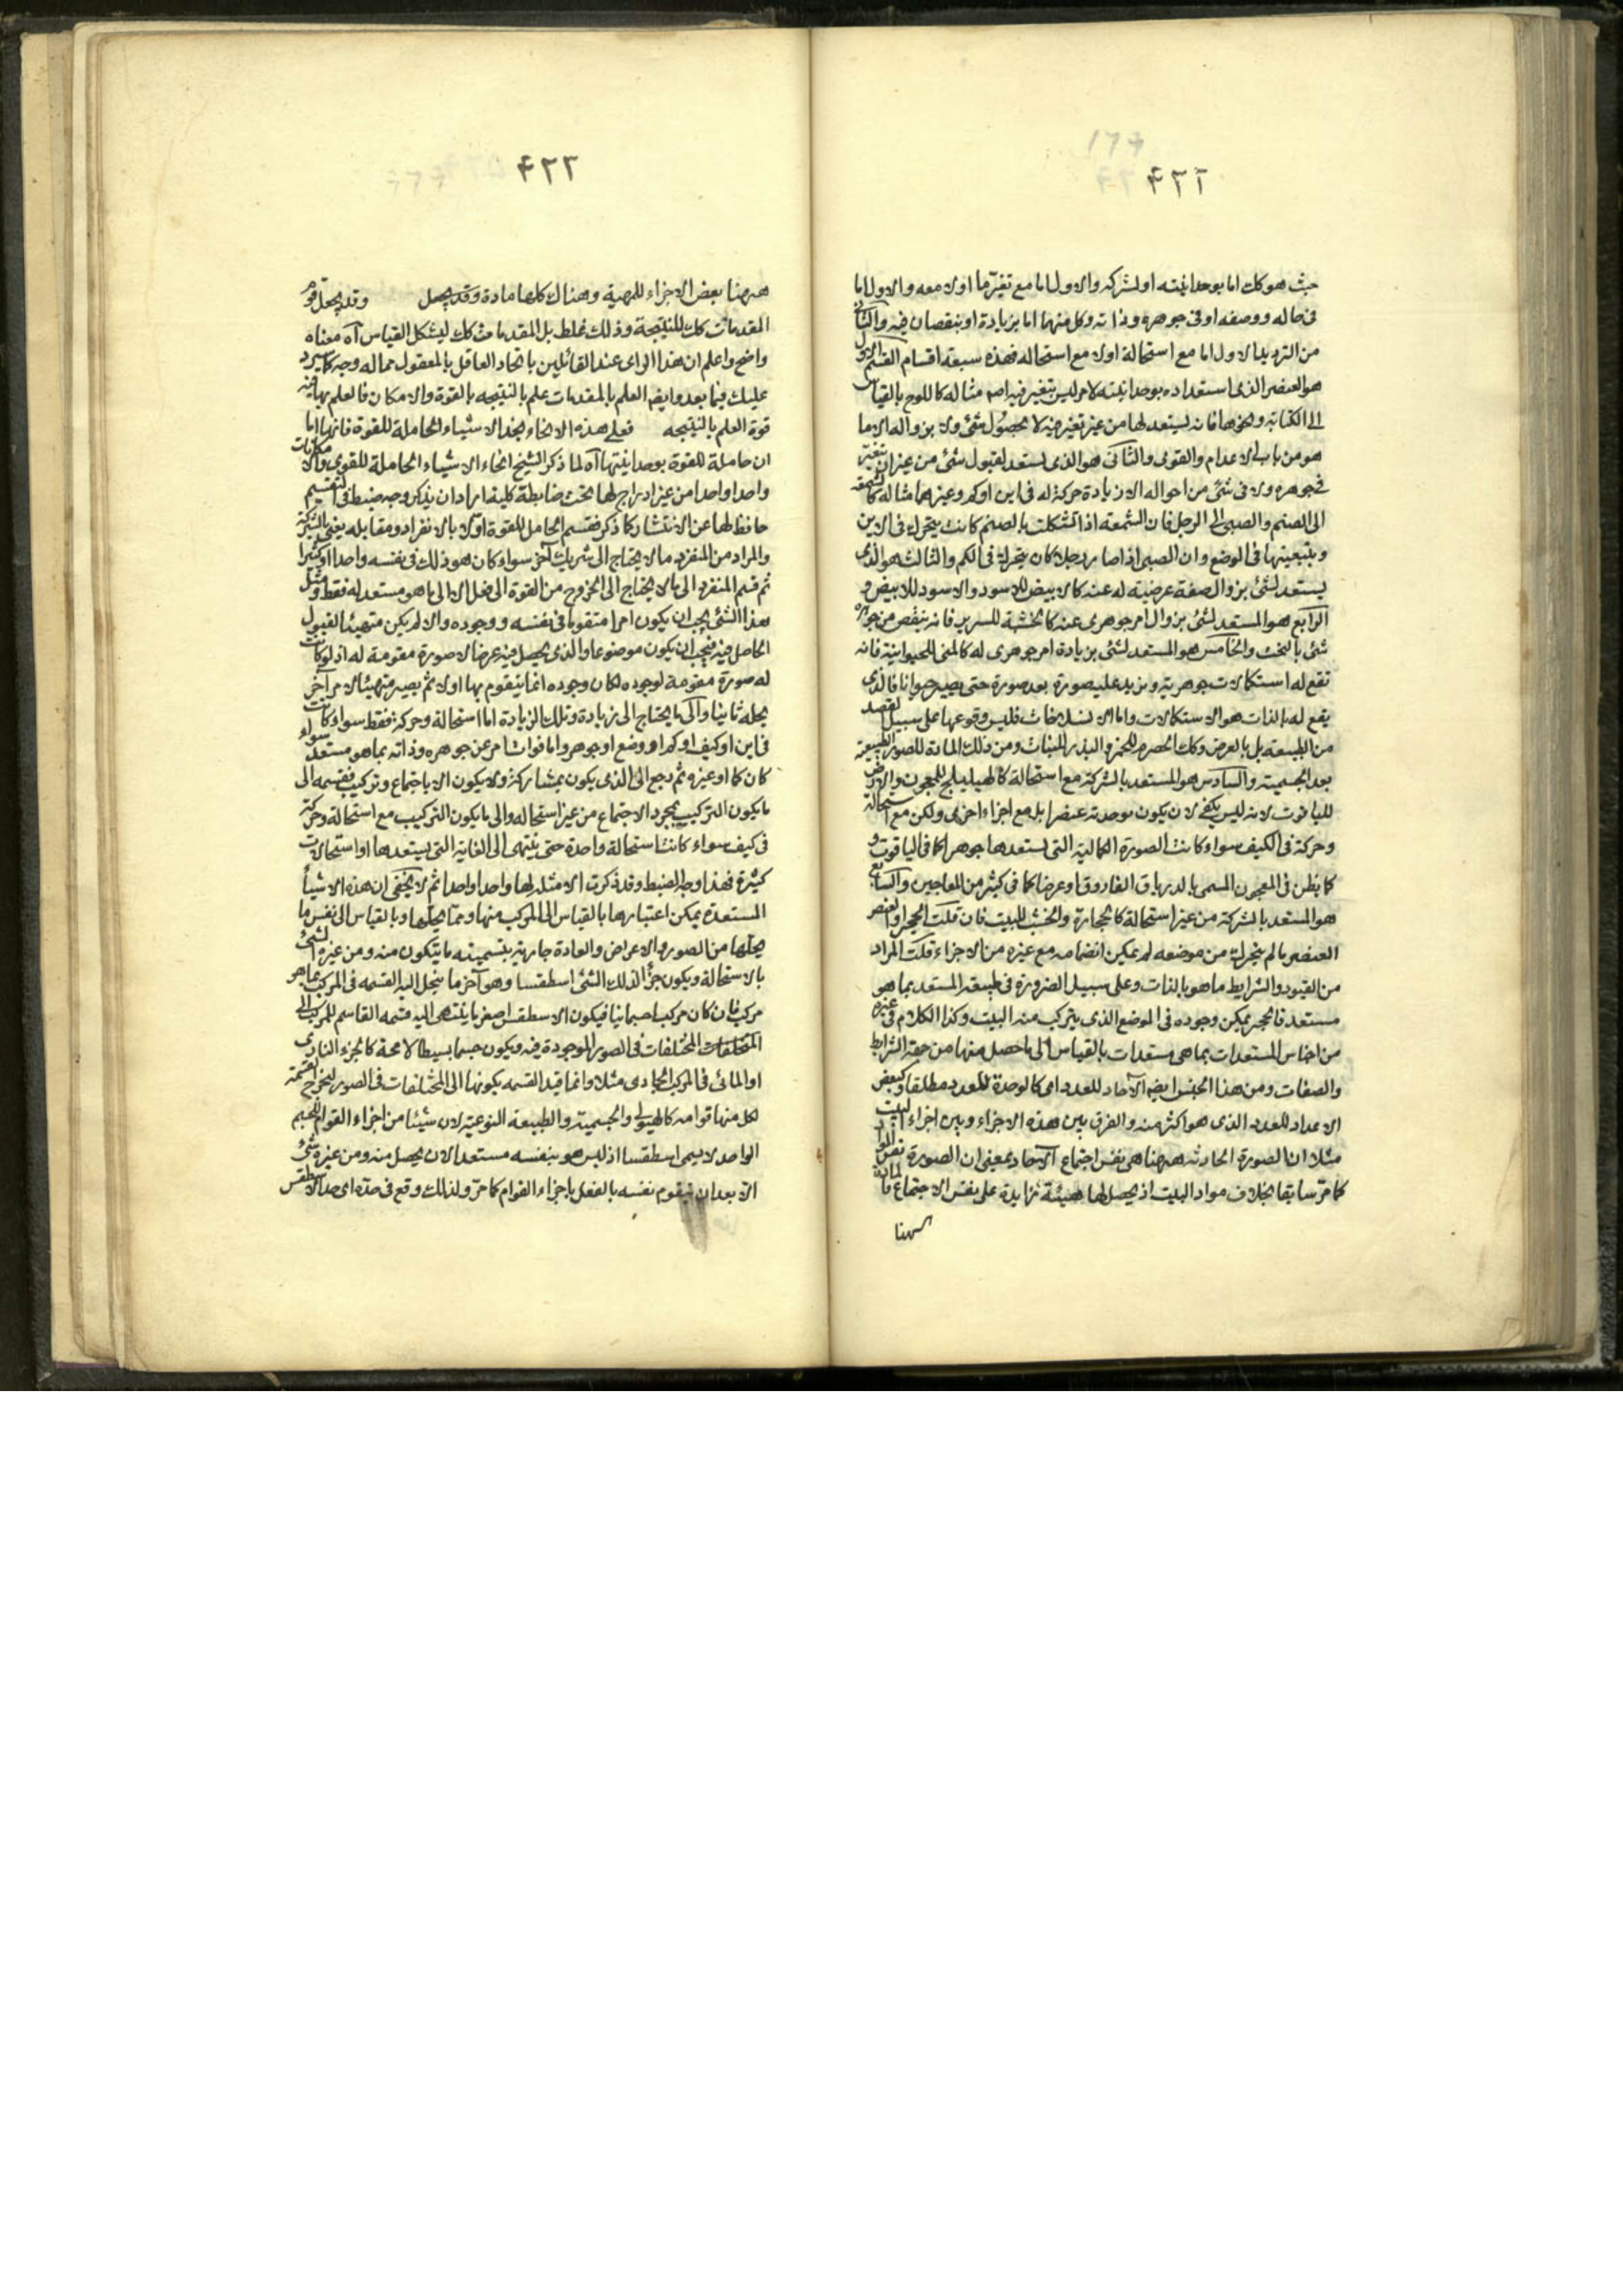 ۴۲۱
حيث هو كك اما بوحدانيته او بشركه والاول اما مع تغير ما اولا معه والاول اما
فى حاله ووصفه او فى جوهره وذاته وكل منهما اما بزيادة او بنقصان فيه والثانى
من الترديد الاول اما مع استحالة اولا مع استحاله فهذه سبعة اقسام القسم الاول
هو العنصر الذى استعداده بوحدانيته لامر ليس بتغير فيه اصلا مثاله كاللوح بالقياس
الى الكتابة ونحوها فانه يستعد لها من غير تغير فيه لا بحصول شئ ولا بزواله الا ما
هو من باب الاعدام والقوى والثانى هو الذى يستعد لقبول شئ من غير ان يتغير
فى جوهره ولا فى شئ من احواله الا زيادة حركة له فى اين او كم وغيرهما مثاله كالشمعة
الى الصنم والصبى الى الرجل فان الشمعة اذا تشكلت بالصنم كانت يتحرك فى الاين
وبتبعيتها فى الوضع وان الصبى اذا صار رجلا كان يتحرك فى الكم والثالث هو الذى
يستعد لشئ بزوال صفة عرضية له عنه كالابيض للاسود والاسود للابيض و
الرابع هو المستعد لشئ بزوال امر جوهرى عنه كالخشبة للسرير فانه ينقص من جوهره
شئ بالنحت والخامس هو المستعد لشئ بزيادة امر جوهرى له كالمنى للحيوانية فانه
تقع له استكمالات جوهرية ويزيد عليه صورة بعد صورة حتى يصير حيوانا فالذى
يقع له بالذات هو الاستكمالات واما الانسلاخات فليس وقوعها على سبيل القصد
من الطبيعة بل بالعرض وكك الحصرم للخمر والبذر للنبات ومن ذلك المادة للصور الطبيعية
بعد الجسمية والسادس هو المستعد بالشركة مع استحالة كالهليلج للمعجون والارض
للياقوت لانه ليس يكفى لان يكون بوحدته عنصرا بل مع اجزاء اخرى ولكن مع استحالة
وحركة فى الكيف سواء كانت الصورة الكمالية التى يستعدها جوهرا كما فى الياقوت و
كما يظن فى المعجون المسمى بالدرياق الفاروق او عرضا كما فى كثير من المعاجين والسابع
هو المستعد بالشركة من غير استحالة كالحجارة والخشب للبيت فان قلت الحجر او العنصر
العنصر ما لم يتحرك من موضعه لم يمكن انضمامه مع غيره من الاجزاء قلت المراد
من القيود والشرايط ما هو بالذات وعلى سبيل الضرورة فى طبيعة المستعد بما هو
مستعد فالحجر يمكن وجوده فى الموضع الذى يتركب منه البيت وكذا الكلام فى غيره
من اجناس المستعدات بما هى مستعدات بالقياس الى ما حصل منها من جهة الشرايط
والصفات ومن هذا الجنس ايضا الآحاد للعدد اى كالوحدة للعدد مطلقا وكبعض
الاعداد للعدد الذى هو اكثر منه والفرق بين هذه الاجزاء وبين اجزاء البيت
مثلا ان الصورة الحادثه هيهنا هى نفس اجتماع الآحاد بمعنى ان الصورة نفس المواد
كما مر سابقا بخلاف مواد البيت اذ يحصل لها هيئة زايدة على نفس الاجتماع فالمادة
هيهنا
۴۲۲
هيهنا بعض الاجزاء للمهية وهناك كلها مادة وقد يحصل وقد يجعل قوم
المقدمات كك للنتيجة وذلك غلط بل المقدمات كك ليشكل القياس آه معناه
واضح واعلم ان هذا الراى عند القائلين باتحاد العاقل بالمعقول مما له وجه كما سيرد
عليك فيما بعد وايضا العلم بالمقدمات علم بالنتيجه بالقوة والامكان فالعلم بها فيه
قوة العلم بالنتيجه فعلى هذه الانحاء نجد الاشياء الحاملة للقوة فانها اما
ان حاملة للقوة بوحدانيتها آه لما ذكر الشيخ انحاء الاشياء الحاملة للقوى والامكانات
واحدا واحدا من غير ادراج لها تحت ضابطة كلية اراد ان يذكر وجه ضبط فى التقسيم
حافظ لها عن الانتشار كما ذكر فقسم الحامل للقوة اولا بالانفراد ومقابله يعنى بالشركة
والمراد من المنفرد ما لا يحتاج الى شريك آخر سواء كان هو ذلك فى نفسه واحدا او كثيرا
ثم قسم المنفرد الى ما لا يحتاج الى الخروج من القوة الى الفعل الا الى ما هو مستعد له فقط ومثل
هذا الشئ يجب ان يكون امرا متقوما فى نفسه ووجوده والا لم يكن متهيئا لقبول
الحاصل فيه فيجب ان يكون موضوعا والذى يحصل فيه عرضا لا صورة مقومة له اذ لو كانت
له صورة مقومة لوجوده لكان وجوده انما يتقوم بها اولا ثم يصير متهيئا لامر آخر
يحله ثانيا والى ما يحتاج الى زيادة وتلك الزيادة اما استحالة وحركة فقط سواء كانت
فى اين او كيف او كم او وضع او جوهر واما فوات امر عن جوهره وذاته بما هو مستعد سواء
كان كما او غيره ثم رجع الى الذى يكون بمشاركة ولا يكون الا باجتماع وتركيب فقسمه الى
ما يكون التركيب بمجرد الاجتماع من غير استحاله والى ما يكون التركيب مع استحالة وحركة
فى كيف سواء كانت استحالة واحدة حتى ينتهى الى الغاية التى يستعدها او استحالات
كثيرة فهذا وجه الضبط وقد ذكرت الامثله لها واحدا واحدا ثم لا يخفى ان هذه الاشياء
المستعدة يمكن اعتبارها بالقياس الى المركب منها ومما يحلها وبالقياس الى نفس ما
يحلها من الصور والاعراض والعادة جارية بتسمية ما يتكون منه ومن غيره الشئ
بالاستحالة ويكون جزءا لذلك الشئ اسطقسا وهو آخر ما ينحل اليه القسمه فى المركب بما هو
مركب فان كان مركبا جسمانيا فيكون الاسطقس اصغر ما ينتهى اليه قسمه القاسم للمركب الى
المختلفات فى الصور الموجودة فيه ويكون جسما بسيطا لا محة كالجزء النارى
او المائى فى المركب الجمادى مثلا وانما قيد القسمه بكونها الى المختلفات فى الصور ليخرج القسمة
لكل منها قوامه كالهيولى والجسمية والطبيعة النوعية لان شيئا من اجزاء القوام للجسم
الواحد لا يسمى اسطقسا اذ ليس هو بنفسه مستعدا لان يحصل منه ومن غيره شئ
الا بعد ان يتقوم نفسه بالفعل باجزاء القوام كما مر ولذلك وقع فى حده اى حد الاسطقس